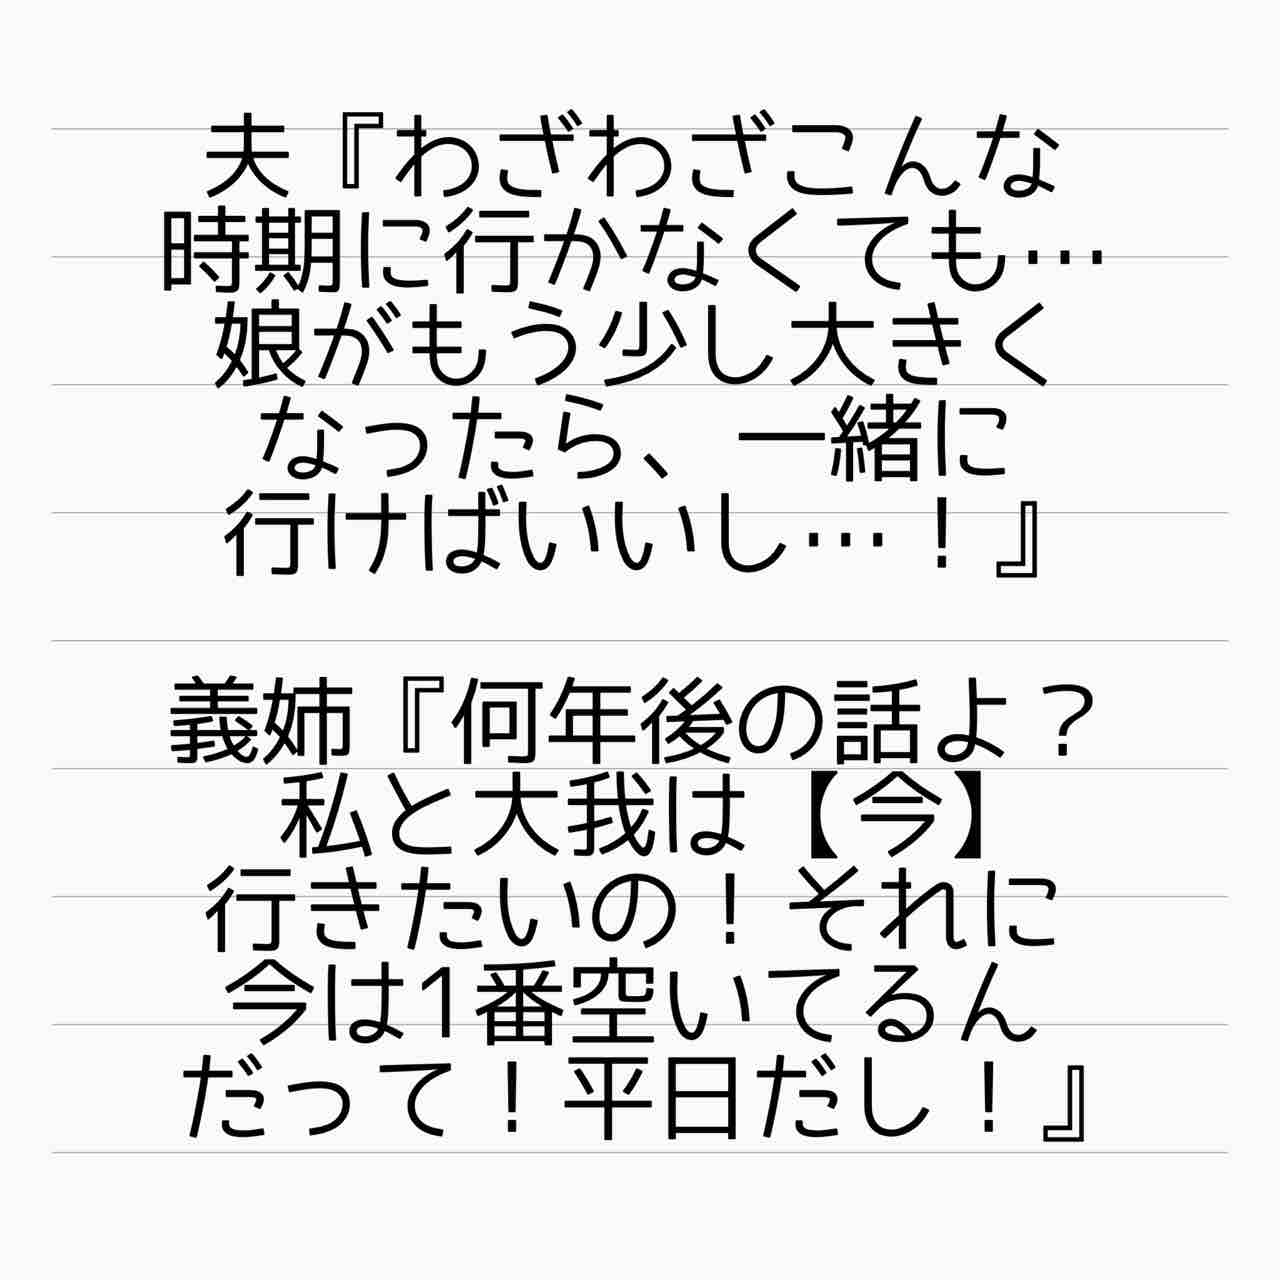 夫『わざわざこんな
時期に行かなくても…
娘がもう少し大きく
なったら、一緒に
行けばいいし…！』
義姉『何年後の話よ？
私と大我は【今】
行きたいの！それに
今は1番空いてるん
だって！平日だし！』